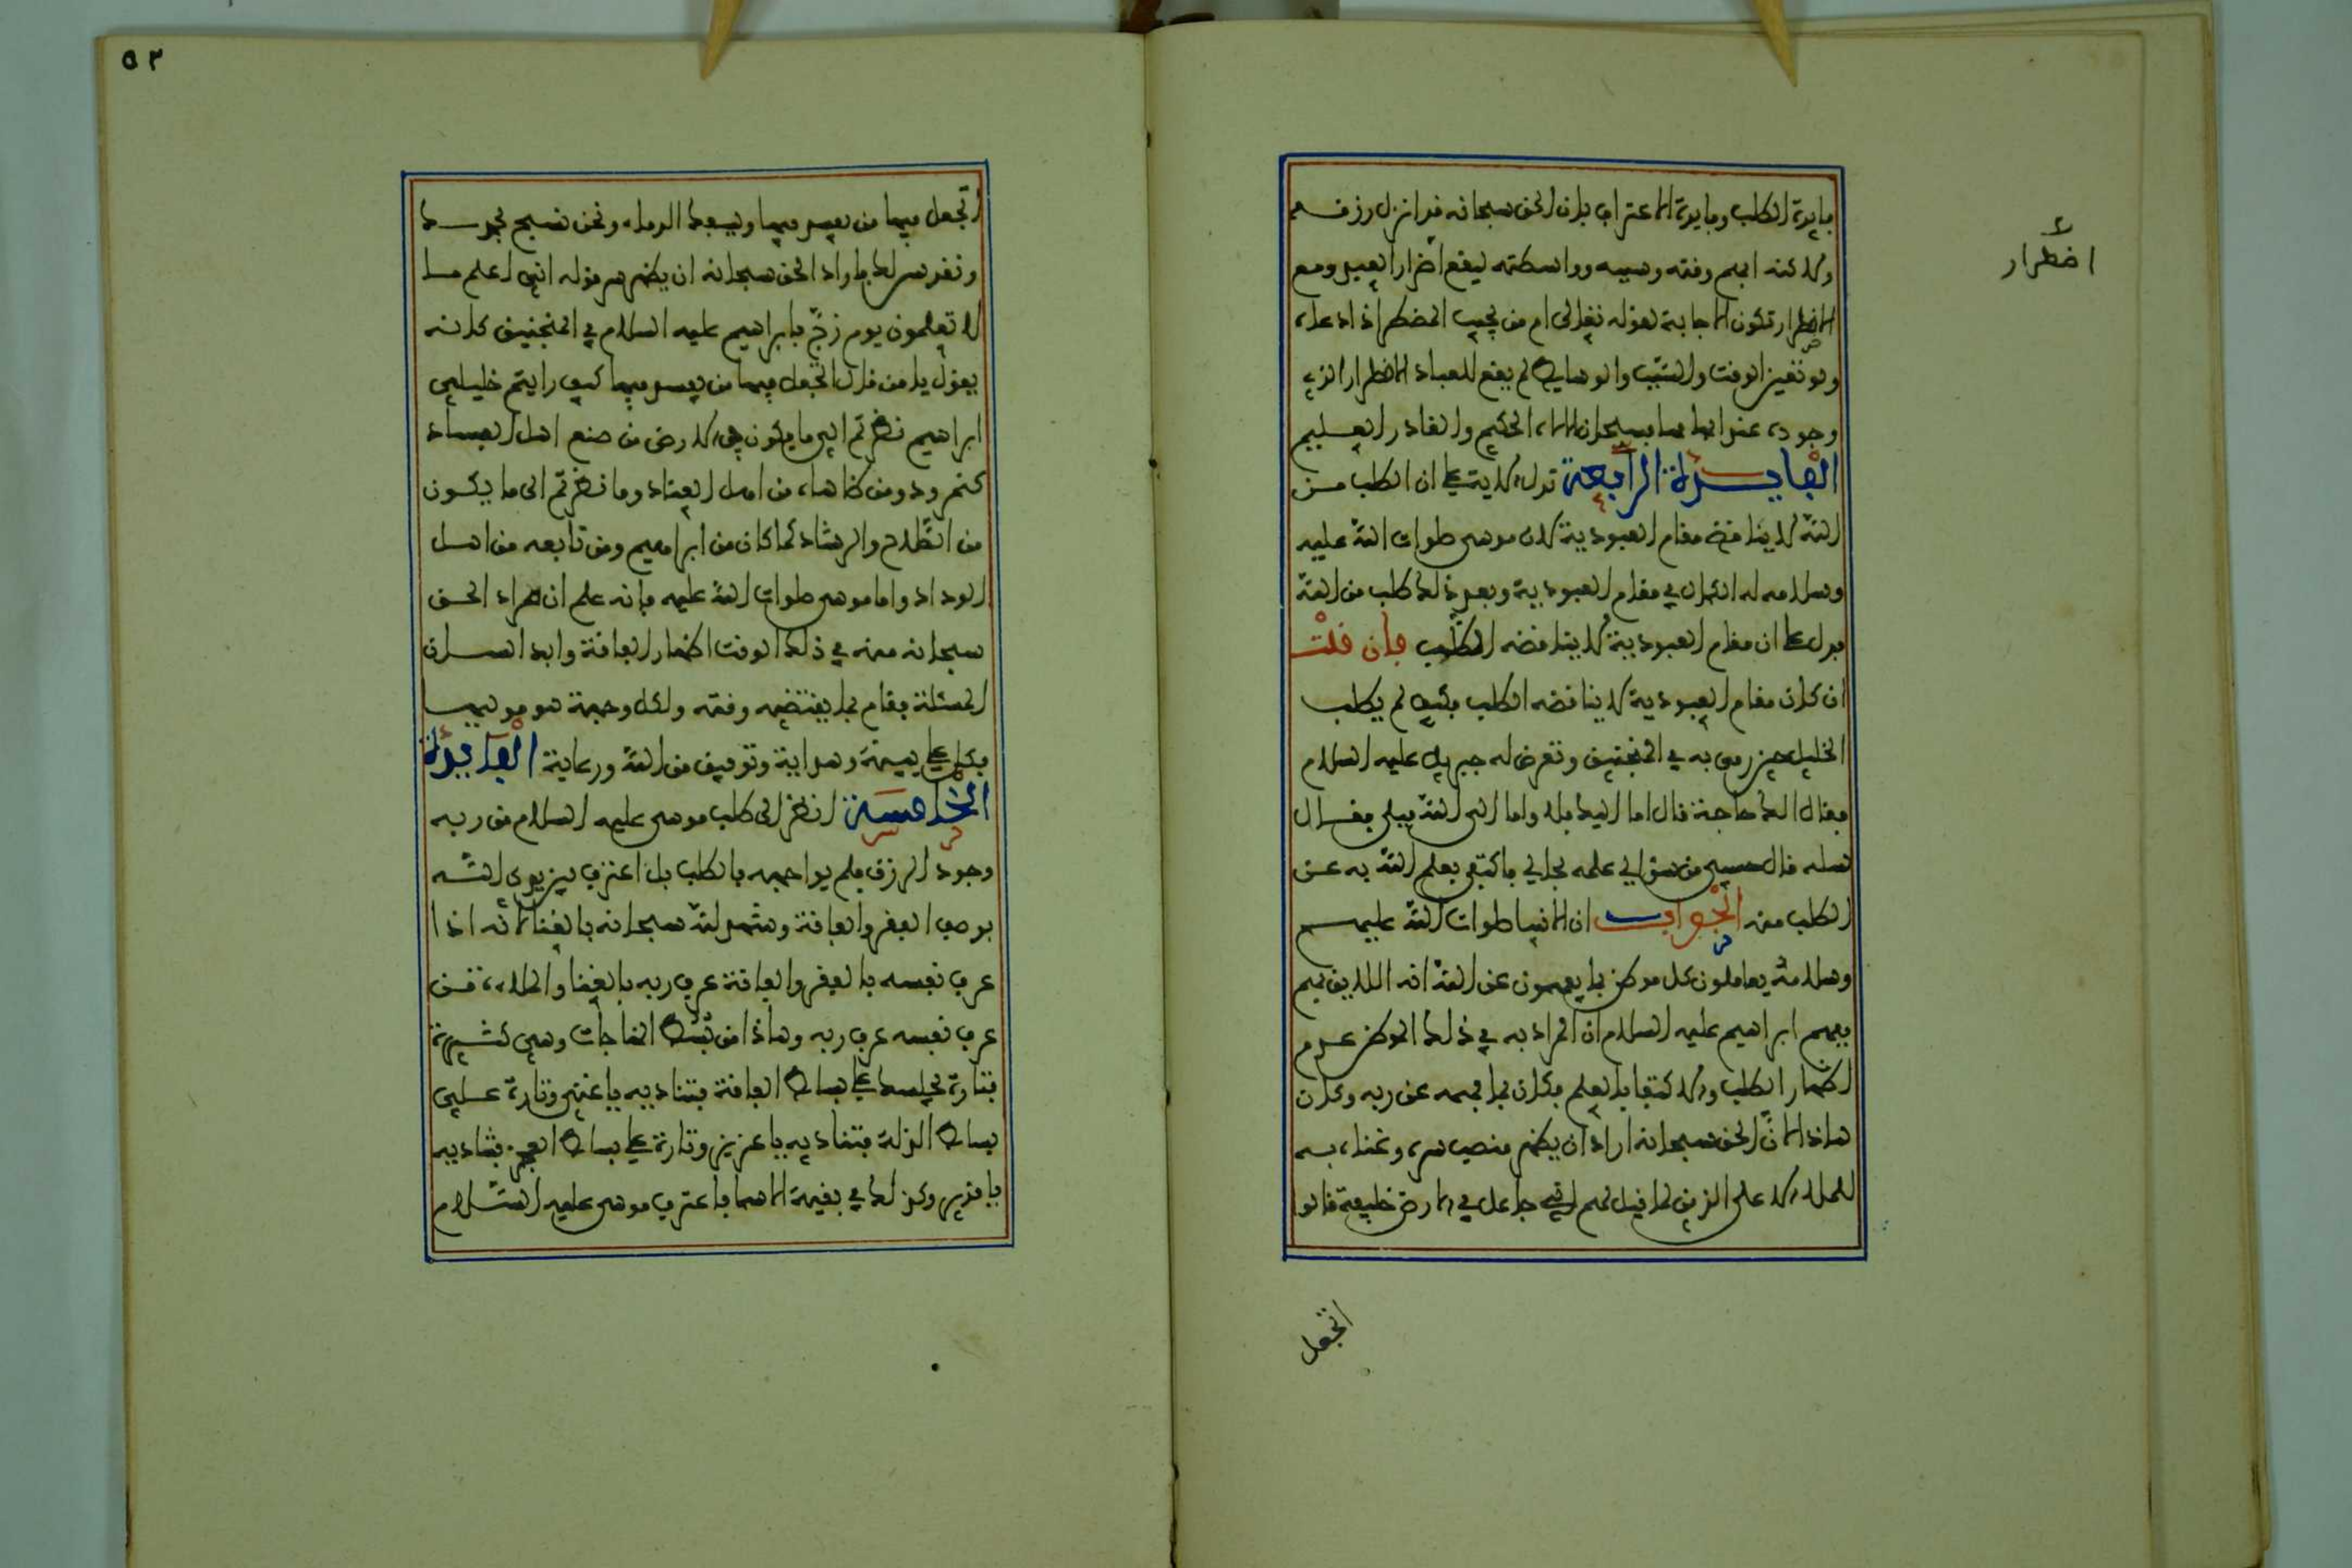 فايدة الطلب وفايدة الاعتراف بان الحق سبحانه قد انزل رزقهم
ولاكنه ابهم وقته وسببه وواسطته ليقع اضرار العبيد ومع
الاضطرار تكون الاجابة لقوله تعالى ام من يجيب المضطر اذا دعاه
ولو تعين الوقت والسبب والوسايط لم يقع للعباد الاضطرار الذي
وجوده عند ابهامها فسبحان الاله الحكيم والقادر العليم
الفايدة الرابعة تدل الاية على ان الطلب من
الله لا يناقض مقام العبودية لان موسى صلوات الله عليه
وسلامه له الكمال في مقام العبودية وبعد ذلك طلب من الله
فدل على ان مقام العبودية لا يناقضه الطلب فان قلت
ان كان مقام العبودية لا يناقضه الطلب فكيف لم يطلب
الخليل حين رمي به في المنجنيق وتعرض له جبريل عليه السلام
فقال الك حاجة قال اما اليك فلا واما الى الله فبلى فقال
سله قال حسبي من سؤالي علمه بحالي فاكتفى بعلم الله به عن
الطلب منه الجواب ان الانبيا صلوات الله عليهم
وسلامه يعاملون كل موطن بما يفهمون عن الله انه اللايق بهم
ففهم ابراهيم عليه السلام ان المراد به في ذلك الموطن عدم
اظهار الطلب والاكتفا بالعلم فكان بما فهمه عن ربه وكان
هاذا لان الحق سبحانه اراد ان يظهر منصب سره وعنايته به
للملا الاعلى الذين لما قيل لهم اني جاعل في الارض خليفة قالوا
اضطرار
اتجعل
٥٣
اتجعل فيها من يفسد فيها ويسفك الدماء ونحن نسبح بحمدك
ونقدس لك فاراد الحق سبحانه ان يظهر سر قوله اني اعلم ما
لا تعلمون يوم زج بابراهيم عليه السلام في المنجنيق كانه
يقول يا من قال اتجعل فيها من يفسد فيها كيف رايتم خليلي
ابراهيم نظرتم الى ما يكون في الارض من صنع اهل الفساد
كنمرود ومن ضاهاه من اهل العناد وما نظرتم الى ما يكون
من الصلاح والرشاد كما كان من ابراهيم ومن تابعه من اهل
الوداد واما موسى صلوات الله عليه فانه علم ان مراد الحق
سبحانه منه في ذلك الوقت اظهار الفاقة وابدا لسان
المسئلة فقام بما يقتضيه وقته ولكل وجهة هو موليها
فكل على بينة وهداية وتوفيق من الله ورعاية الفايدة
الخامسة انظر الى طلب موسى عليه السلام من ربه
وجود الرزق فلم يواجهه بالطلب بل اعترف بين يدي الله
بوصف الفقر والفاقة وشهد لله سبحانه بالغنا لانه اذا
عرف نفسه بالفقر والفاقة عرف ربه بالغنا والملاءة من
عرف نفسه عرف ربه وهاذا من بسط المناجات وهي كثيرة
فتارة يجلسك على بساط الفاقة فتناديه يا غني وتارة على
بساط الذلة فتناديه يا عزيز وتارة على بساط العجز فتناديه
يا قدير وكذلك في بقية الاسما فاعترف موسى عليه السلام